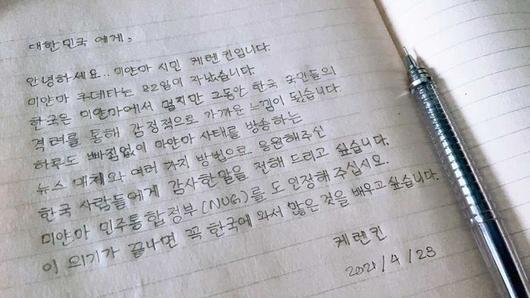 대한민국 에게,
안녕하세요.. 미얀마 시민 케렌킨입니다.
미얀마 쿠데타는 82일이 지났습니다.
한국은 미얀마에서 멀지만 그동안 한국 국민들의
격려를 통해 감정적으로 가까운 느낌이 됐습니다.
하루도 빠짐없이 미얀마 사태를 방송하는
뉴스 매체와 여러 가지 방법으로 응원해주신
한국 사람들에게 감사한 말을 전해 드리고 싶습니다.
미얀마 민주통합정부(NUG)를 도 인정해 주십시오.
이 위기가 끝나면 꼭 한국에 와서 많은 것을 배우고 싶습니다.
케렌킨
2021/4/23